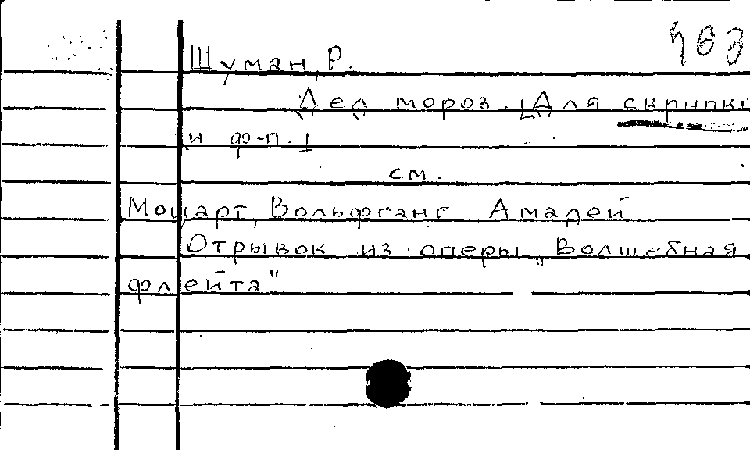 783
Шуман, Р.
Дед мороз. [Для скрипки
и ф-п.]
см.
Моцарт, Вольфганг Амадей
Отрывок из оперы „Волшебная
флейта"